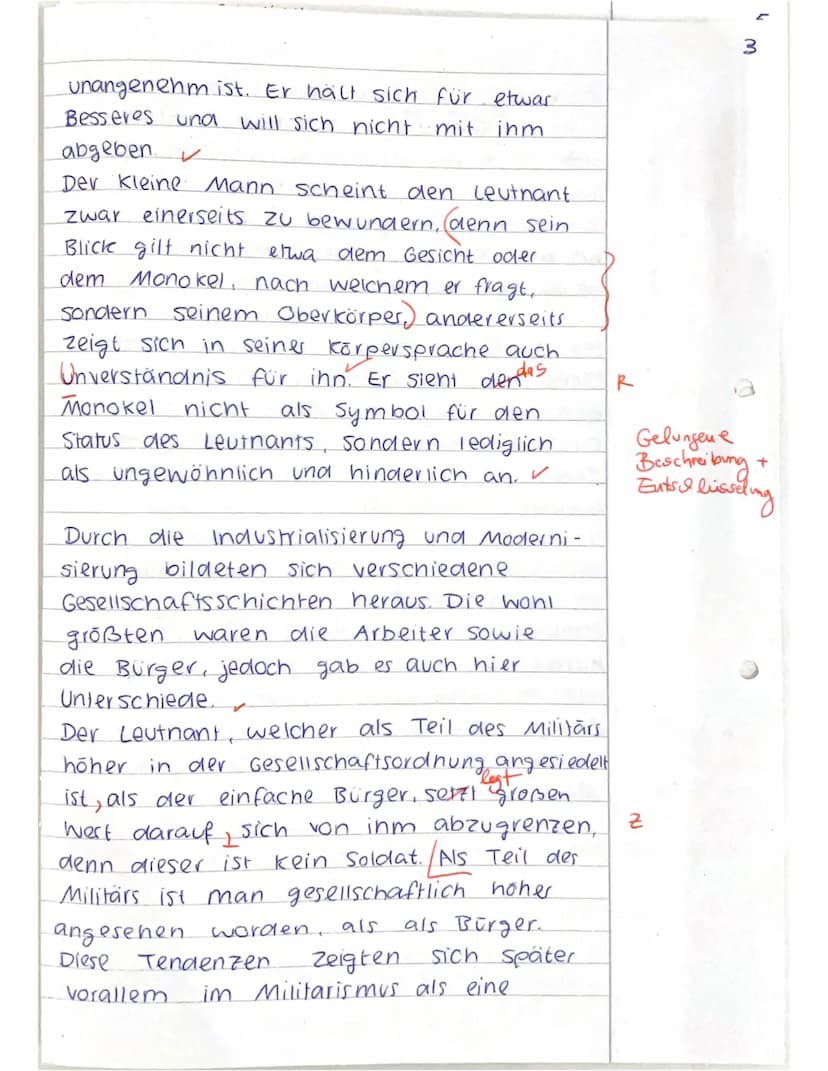 3
unangenehm ist. Er hält sich für etwas
Besseres und will sich nicht mit ihm
abgeben. ✓
Der kleine Mann scheint den Leutnant
zwar einerseits zu bewundern, (denn sein
Blick gilt nicht etwa dem Gesicht oder
dem Monokel, nach welchem er fragt,
sondern seinem Oberkörper,) andererseits
zeigt sich in seiner Körpersprache auch
Unverständnis für ihn. ✓ Er sieht den das
R
Monokel nicht als Symbol für den
Status des Leutnants, sondern lediglich
als ungewöhnlich und hinderlich an. ✓
Gelungene
Beschreibung +
Entschlüsselung
Durch die Industrialisierung und Moderni-
sierung bildeten sich verschiedene
Gesellschaftsschichten heraus. Die wohl
größten waren die Arbeiter sowie
die Bürger, jedoch gab es auch hier
Unterschiede. ✓
Der Leutnant, welcher als Teil des Militärs
höher in der Gesellschaftsordnung angesiedelt
ist, als der einfache Bürger, setzt legt großen
Wert darauf, sich von ihm abzugrenzen,
Z
denn dieser ist kein Soldat. Als Teil des
Militärs ist man gesellschaftlich höher
angesehen worden, als als Bürger.
Diese Tendenzen zeigten sich später
vorallem im Militarismus als eine